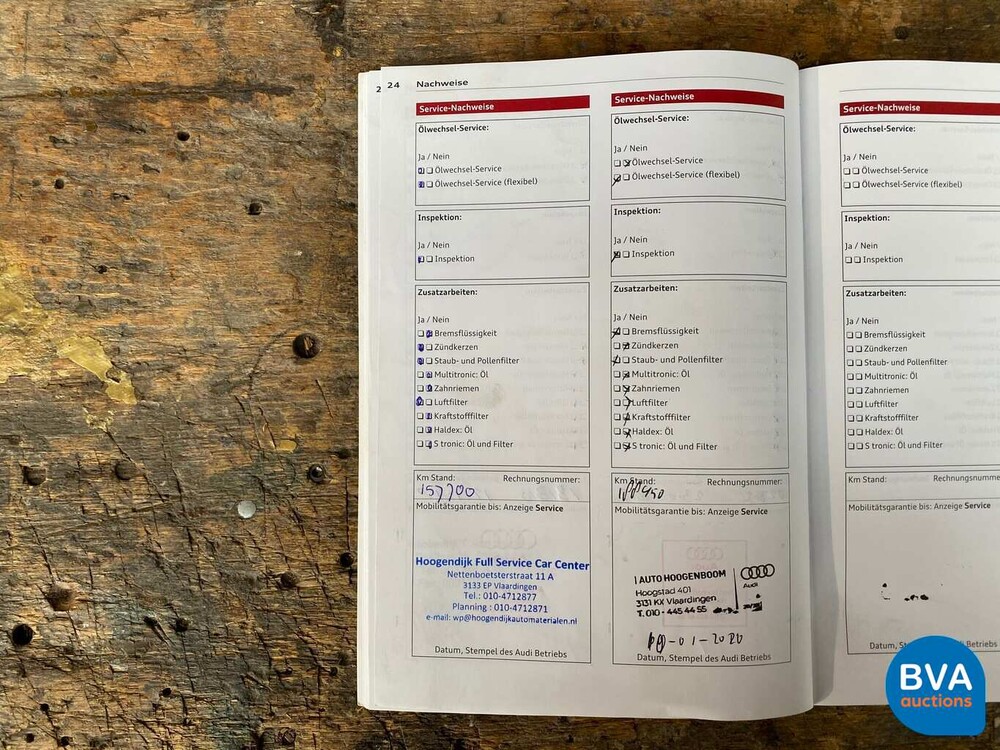 2 24 Nachweise
Service-Nachweise
Ölwechsel-Service:
Ja / Nein
Ölwechsel-Service
Ölwechsel-Service (flexibel)
Inspektion:
Ja / Nein
Inspektion
Zusatzarbeiten:
Ja / Nein
Bremsflüssigkeit
Zündkerzen
Staub- und Pollenfilter
Multitronic: Öl
Zahnriemen
Luftfilter
Kraftstofffilter
Haldex: Öl
S tronic: Öl und Filter
Km Stand: Rechnungsnummer:
157700
Mobilitätsgarantie bis: Anzeige Service
Hoogendijk Full Service Car Center
Nettenboetsterstraat 11 A
3133 EP Vlaardingen
Tel.: 010-4712877
Planning : 010-4712871
e-mail: wp@hoogendijkautomaterialen.nl
Datum, Stempel des Audi Betriebs
Service-Nachweise
Ölwechsel-Service:
Ja / Nein
Ölwechsel-Service
Ölwechsel-Service (flexibel)
Inspektion:
Ja / Nein
Inspektion
Zusatzarbeiten:
Ja / Nein
Bremsflüssigkeit
Zündkerzen
Staub- und Pollenfilter
Multitronic: Öl
Zahnriemen
Luftfilter
Kraftstofffilter
Haldex: Öl
S tronic: Öl und Filter
Km Stand: Rechnungsnummer:
Mobilitätsgarantie bis: Anzeige Service
AUTO HOOGENBOOM
Audi
Hoogstad 401
3131 KX Vlaardingen
T. 010 - 445 44 55
-01-2020
Datum, Stempel des Audi Betriebs
Service-Nachweise
Ölwechsel-Service:
Ja / Nein
Ölwechsel-Service
Ölwechsel-Service (flexibel)
Inspektion:
Ja / Nein
Inspektion
Zusatzarbeiten:
Ja / Nein
Bremsflüssigkeit
Zündkerzen
Staub- und Pollenfilter
Multitronic: Öl
Zahnriemen
Luftfilter
Kraftstofffilter
Haldex: Öl
S tronic: Öl und Filter
Km Stand: Rechnungsnummer:
Mobilitätsgarantie bis: Anzeige Service
Datum, Betriebs
BVA
auctions